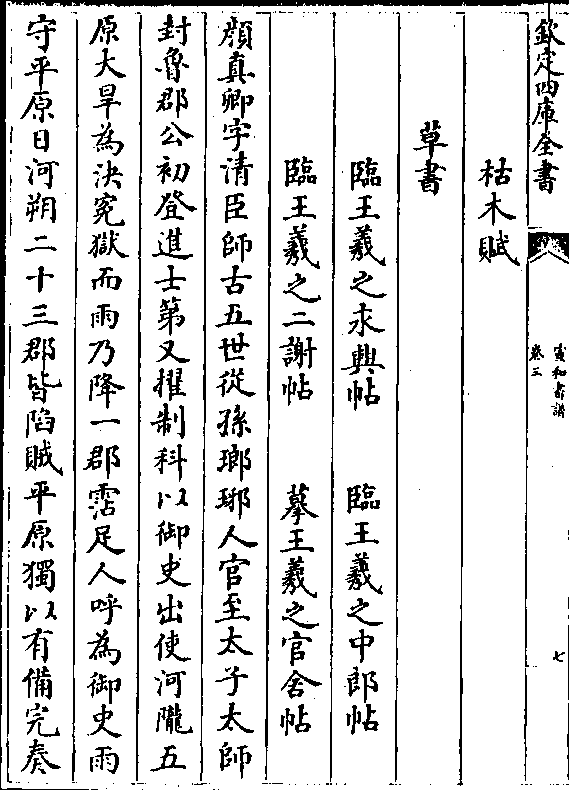 欽定四庫全書
宣和書譜
卷三
七
枯木賦
草書
臨王羲之永興帖　臨王羲之中郎帖
臨王羲之二謝帖　摹王羲之官舍帖
顔真卿字清臣師古五世從孫瑯琊人官至太子太師
封魯郡公初登進士第又擢制科以御史出使河隴五
原大旱為決冤獄而雨乃降一郡霑足人呼為御史雨
守平原日河朔二十三郡皆陷賊平原獨以有備完奏